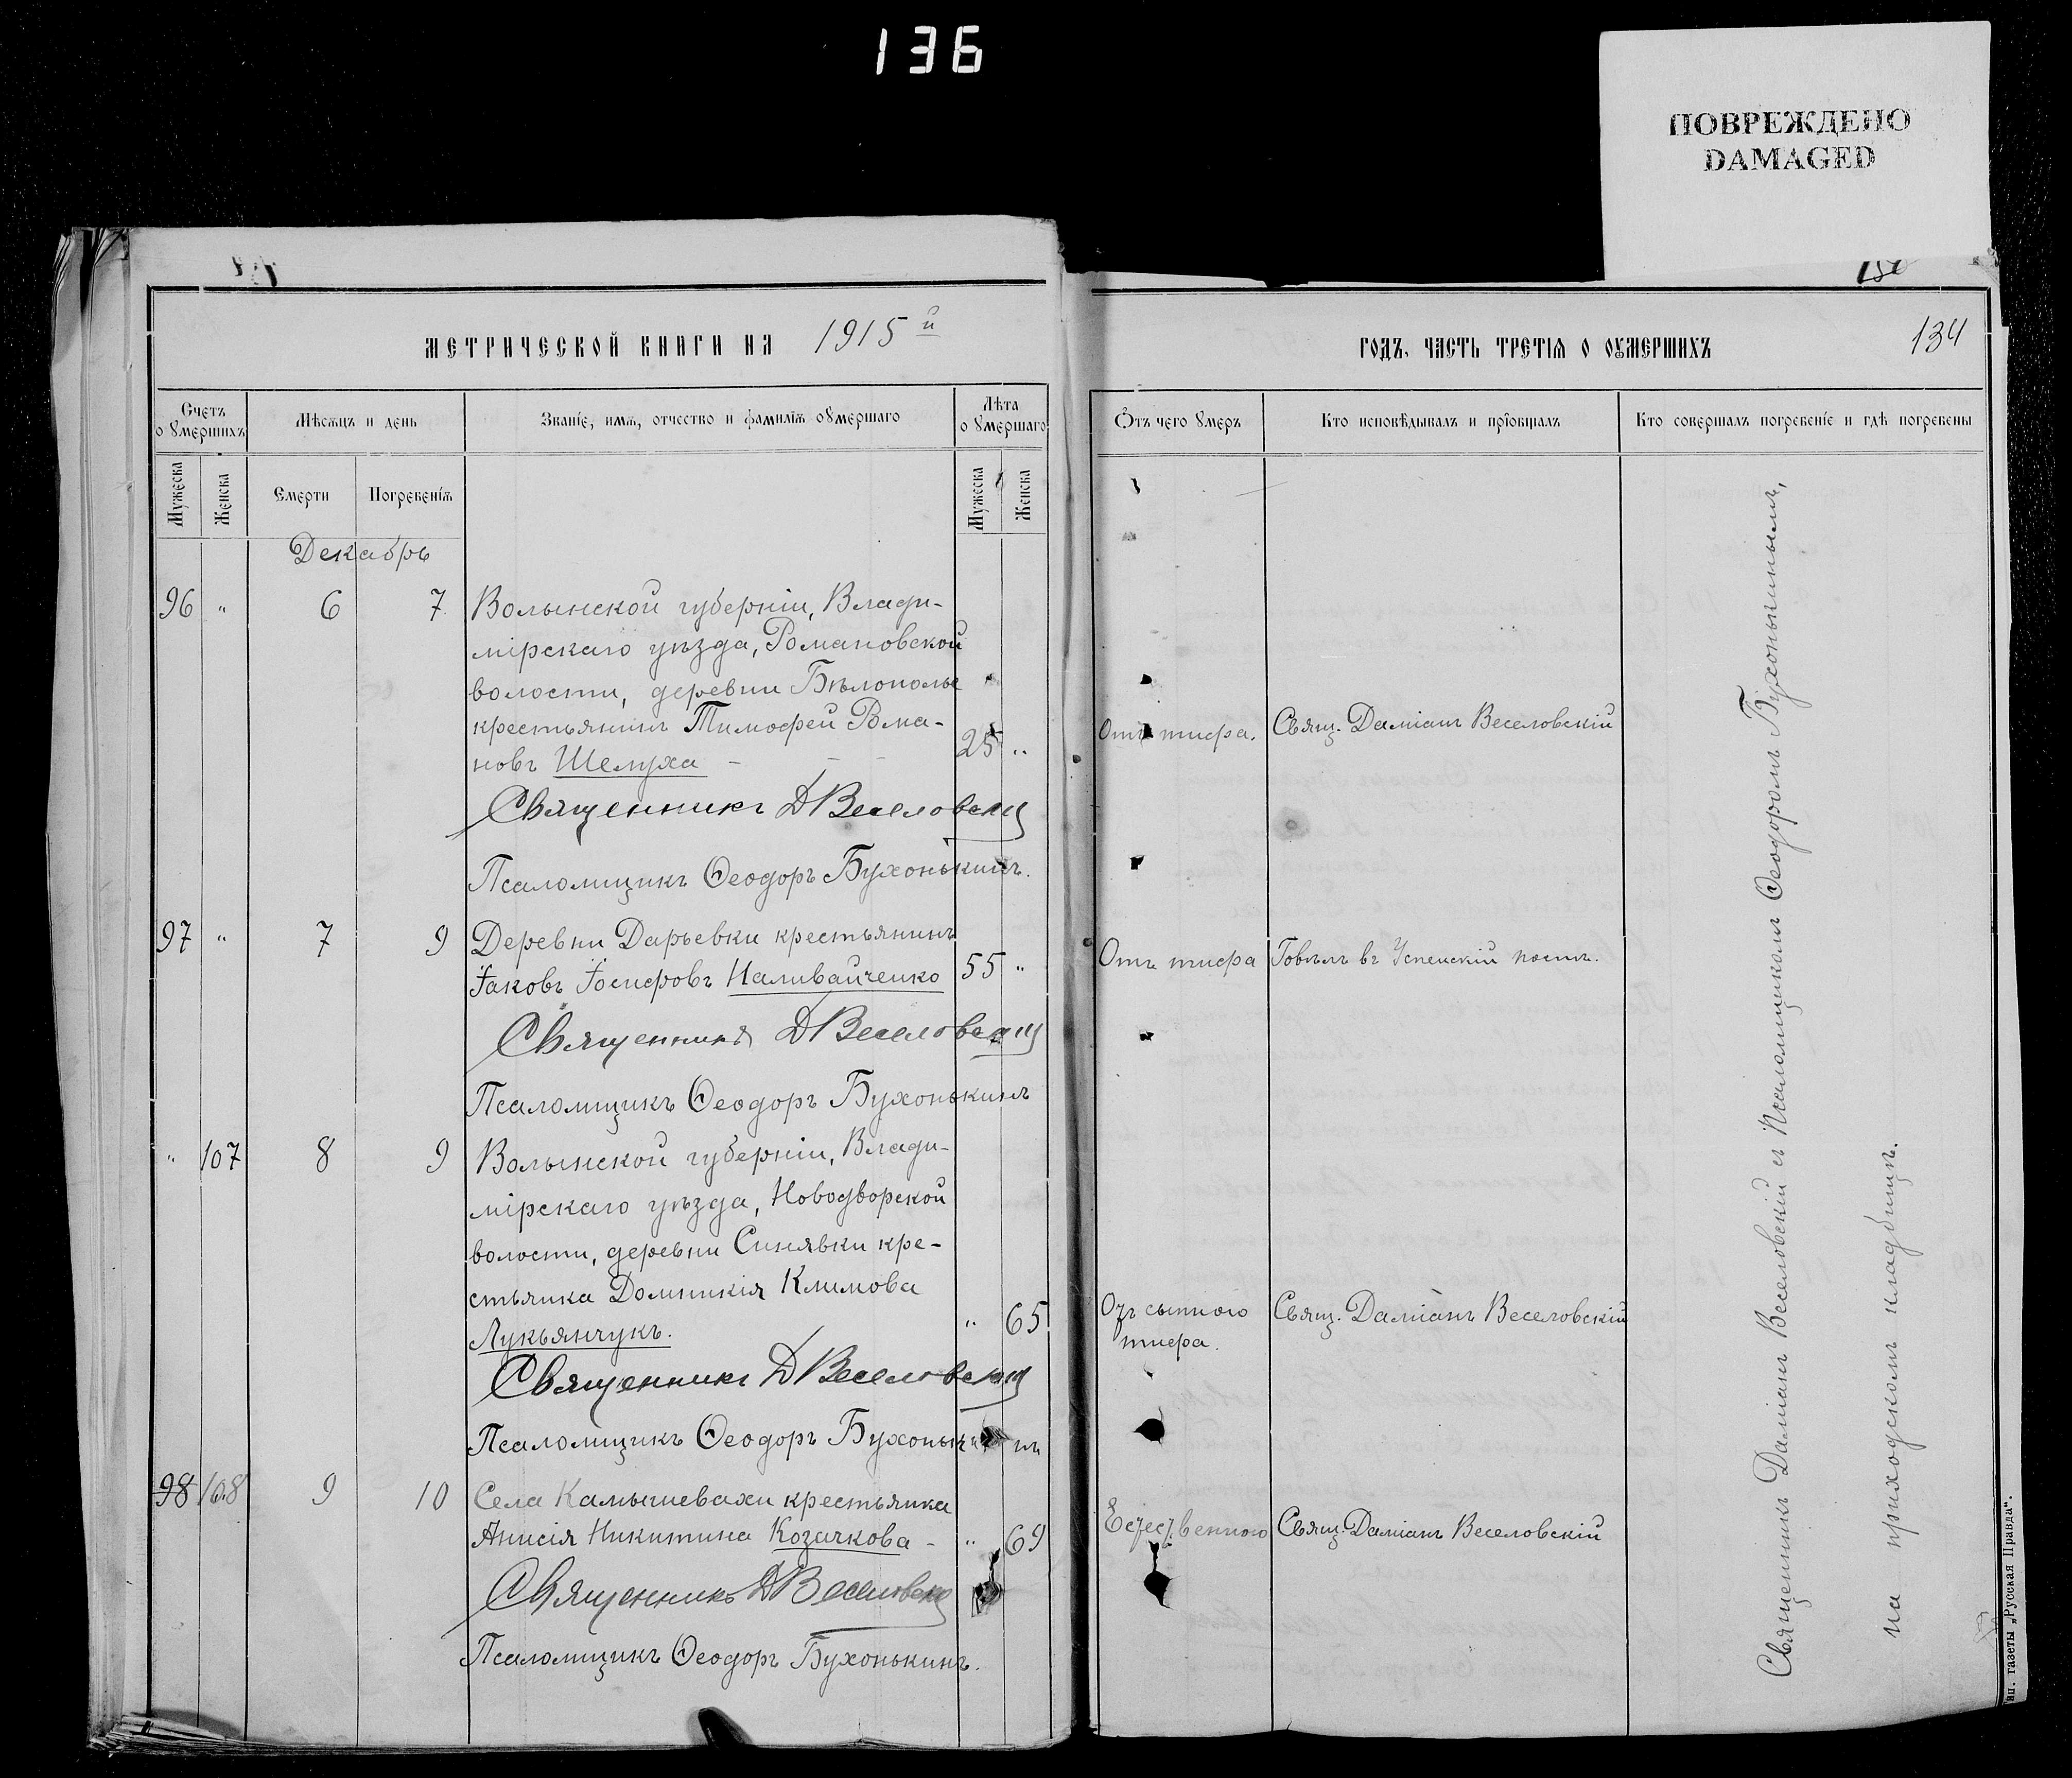 136
ПОВРЕЖДЕНО
DAMAGED
МЕТРИЧЕСКОЙ КНИГИ НА 1915й
ГОДЪ, ЧАСТЬ ТРЕТІѦ О ОУМЕРШИХЪ
134
Счетъ
о Умершихъ
Мѣсяцъ и день
Званіе, имя, отчество и фамилія оумершаго
Лѣта
о Умершаго
Отъ чего Умеръ
Кто исповѣдывалъ и пріобщалъ
Кто совершалъ погребеніе и гдѣ погребены
Мужеска
Женска
Смерти
Погребенія
Мужеска
Женска
Декабрь
96 " 6 7 Волынской губерніи, Влади-
мірскаго уѣзда, Романовской
волости, деревни Бѣлополье
крестьянинъ Тимофей Рома-
новъ Шелуха - 25 " Отъ тифа. Свящ. Даміанъ Веселовскій
Священникъ ДВеселовскій
Псаломщикъ Ѳеодоръ Бухонькинъ.
97 " 7 9 Деревни Дарьевки крестьянинъ
Іаковъ Іосифовъ Наливайченко 55 " Отъ тифа Говѣлъ въ Успенскій постъ.
Священникъ ДВеселовскій
Псаломщикъ Ѳеодоръ Бухонькинъ
" 107 8 9 Волынской губерніи, Влади-
мірскаго уѣзда, Новодворской
волости, деревни Синявки кре-
стьянка Домникія Климова
Лукьянчукъ. " 65 Отъ сыпного Свящ. Даміанъ Веселовскій
тифа.
Священникъ ДВеселовскій
Псаломщикъ Ѳеодоръ Бухонькинъ
98 108 9 10 Села Камышевахи крестьянка
Анисія Никитина Козачкова - " 69 Естественного Свящ. Даміанъ Веселовскій
Священникъ ДВеселовскій
Псаломщикъ Ѳеодоръ Бухонькинъ.
Священникъ Даміанъ Веселовскій съ Псаломщикомъ Ѳеодоромъ Бухонькинымъ,
на приходскомъ кладбищѣ.
газеты „Русская Правда".